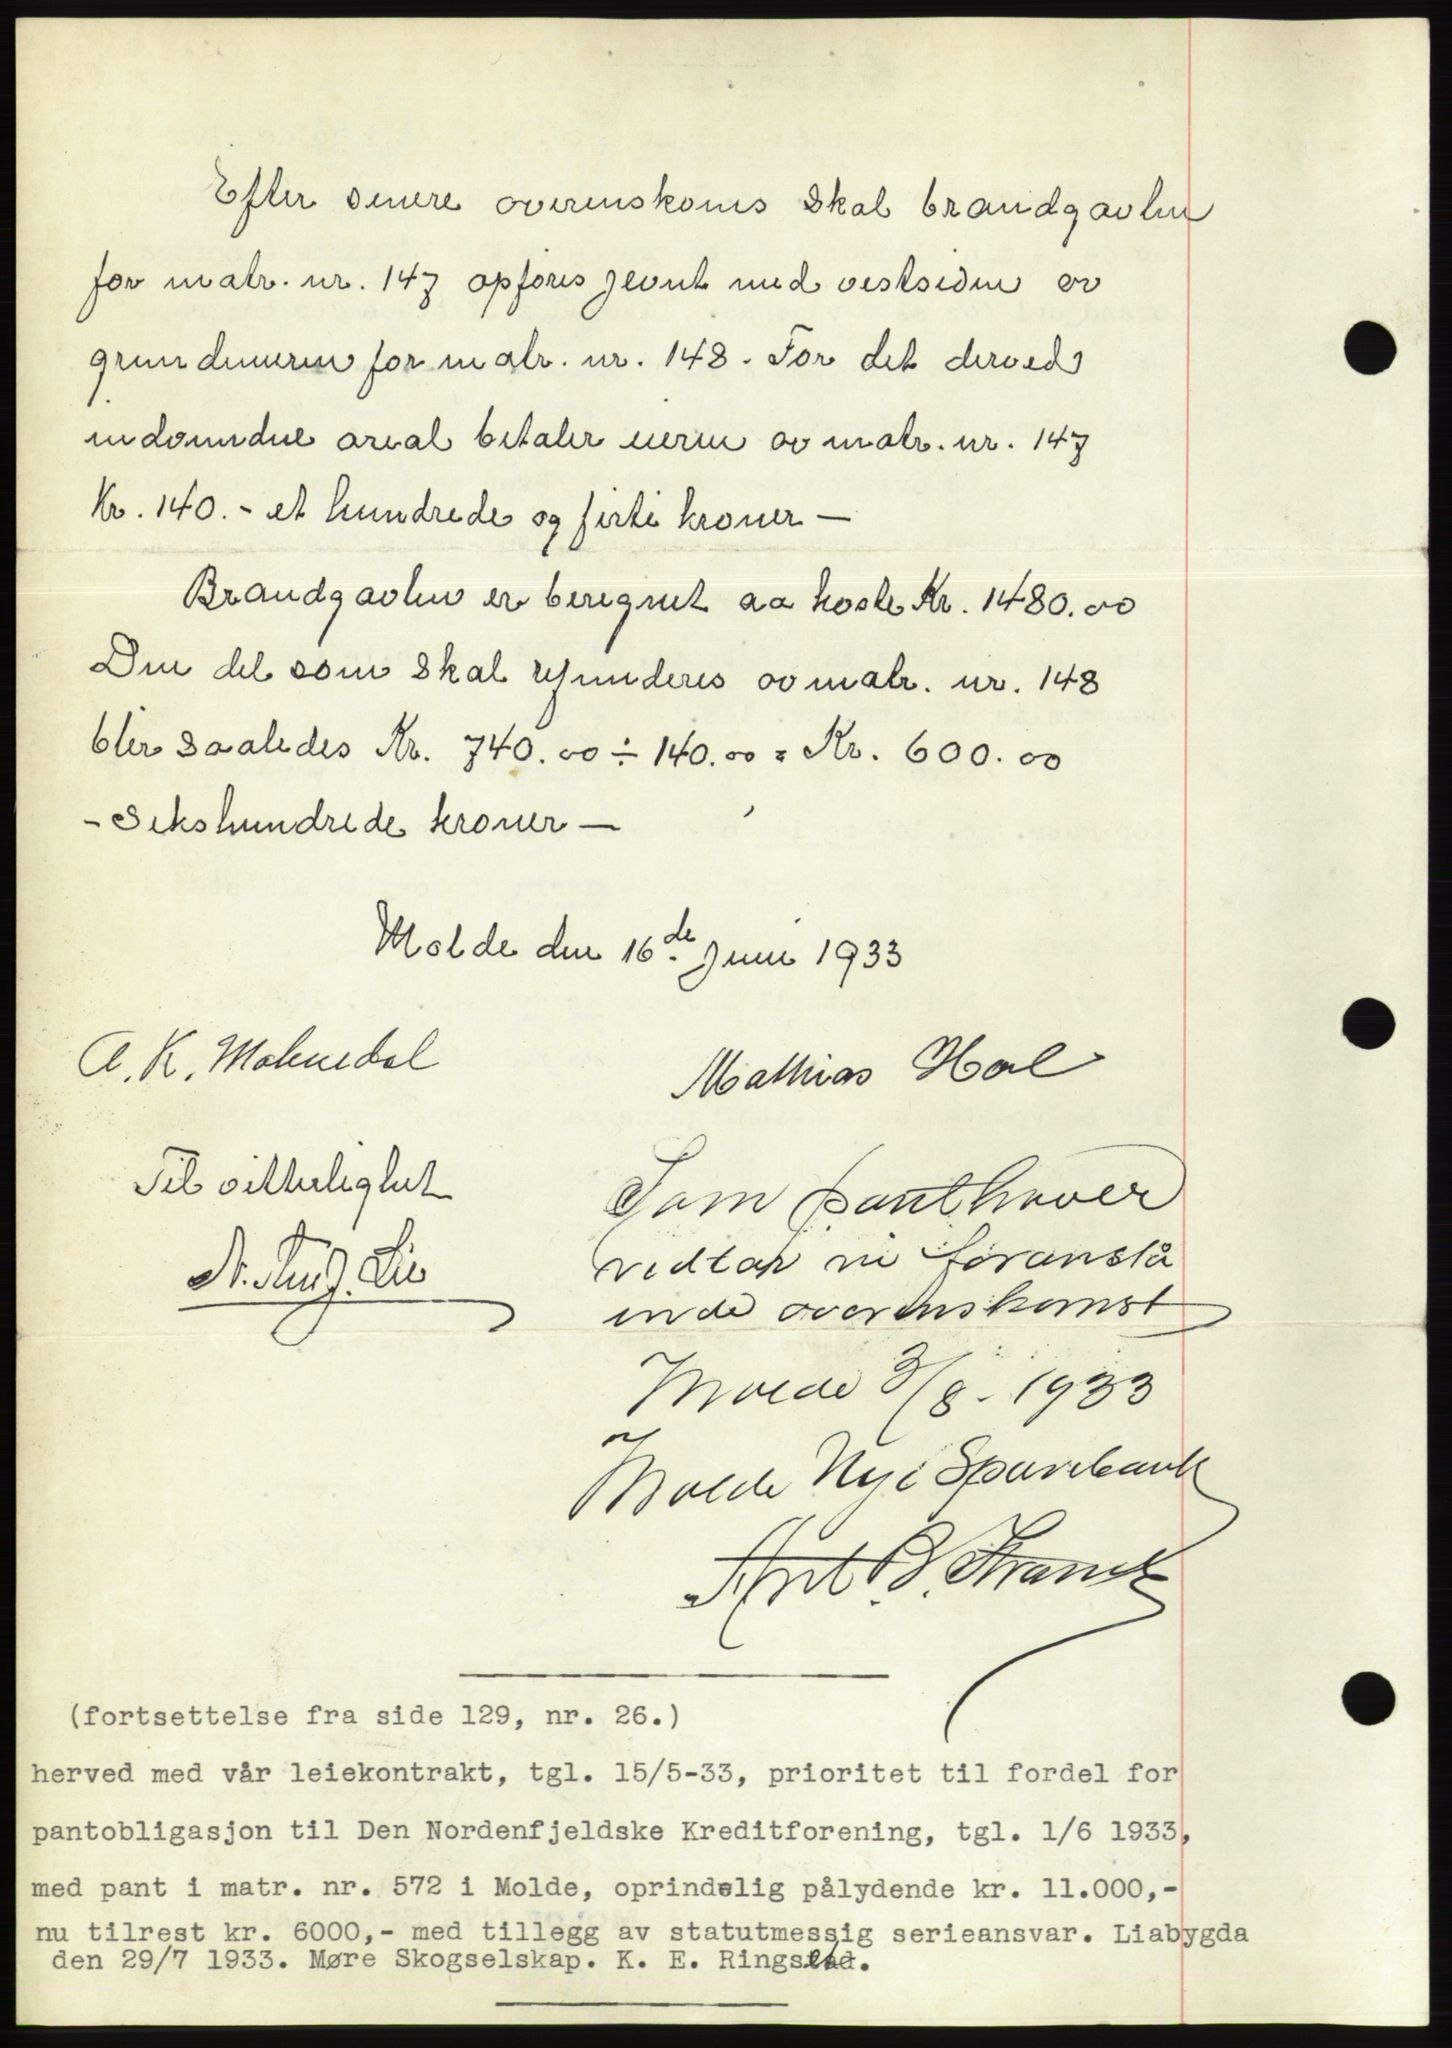 Efter senere overenskoms skal brandgavlen
for matr. nr. 147 opføres jevnt med vestsiden av
grundmuren for matr. nr. 148. For det derved
indvundne areal betaler eieren av matr. nr. 147
Kr. 140.- et hundrede og firti kroner —
Brandgavlen er beregnet aa koste Kr. 1480.00
Den del som skal refunderes av matr. nr. 148
blir saaledes Kr. 740.00 ÷ 140.00 = Kr. 600.00
- Sekshundrede kroner —
Molde den 16de Juni 1933
A. K. Malmedal
Mathias Hol
Til vitterlighet
Lie
Som panthaver
vedtar vi foranstå
ende overenskomst
Molde 3/8 - 1933
Molde Nye Sparebank
Ant. B.
(fortsettelse fra side 129, nr. 26.)
herved med vår leiekontrakt, tgl. 15/5-33, prioritet til fordel for
pantobligasjon til Den Nordenfjeldske Kreditforening, tgl. 1/6 1933,
med pant i matr. nr. 572 i Molde, oprindelig pålydende kr. 11.000,-
nu tilrest kr. 6000,- med tillegg av statutmessig serieansvar. Liabygda
den 29/7 1933. Møre Skogselskap. K. E. Ringstad.